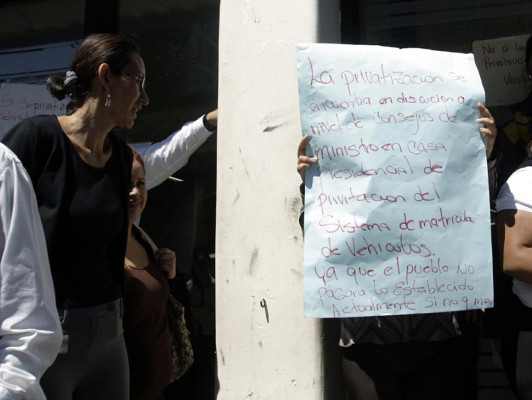 La privatización se
encuentra en discución a
nivel de Consejos de
ministro en Casa
Presidencial de
Privitacion del
Sistema de matricula
de Vehiculos.
ya que el pueblo No
pagara lo Establecido
Actualmente si no 9 mas
No a la
Privatiza
Vehi
No a la
Privatiz